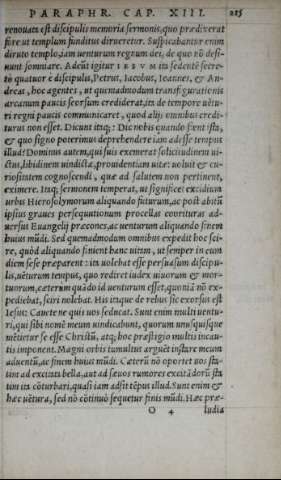 PARAPHR. CAP. XIII. 215
renouata est discipulis memoria sermonis, quo prædixerat
fore ut templum funditus dirueretur. Suspicabantur enim
diruto templo, iam uenturum regnum dei, de quo nō desi-
nunt somniare. Adeūt igitur IESVM in sedente secre-
tò quatuor è discipulis, Petrus, Iacobus, Ioannes, & An-
dreas, hoc agentes, ut quemadmodum transfigurationis
arcanum paucis seorsum crediderat, ita de tempore uētu-
ri regni paucis communicaret, quod alijs omnibus credi-
turus non esset. Dicunt itaq; : Dic nobis quando fient ista,
& quo signo poterimus deprehendere iam adesse tempus
illud? Dominus autem, qui suis exemerat solicitudinem ui-
ctus, libidinem uindictæ, prouidentiam uitæ: uoluit & cu-
riositatem cognoscendi, quæ ad salutem non pertinent,
eximere. Itaq; sermonem temperat, ut significet excidium
urbis Hierosolymorum aliquando futurum, ac post abitū
ipsius graues persequutionum procellas coorituras ad-
uersus Euangelij præcones, ac uenturum aliquando finem
huius mūdi. Sed quemadmodum omnibus expedit hoc sci-
re, quòd aliquando finient hanc uitam, ut semper in eum
diem sese præparent: ita uolebat esse persuasum discipu-
lis, uēturum tempus, quo rediret iudex uiuorum & mor-
tuorum, cæterum quādo id uenturum esset, quoniā nō ex-
pediebat, sciri nolebat. His itaque de rebus sic exorsus est
Iesus: Cauete ne quis uos seducat. Sunt enim multi uentu-
ri, qui sibi nomē meum uindicabunt, quorum unusquisque
mētietur se esse Christū, atq; hoc præstigio multis incau-
tis imponent. Magni orbis tumultus arguēt instare meum
aduentū, ac finem huius mūdi. Cæterū nō oportet uos sta-
tim ad excitata bella, aut ad sæuos rumores excitādorū sta
tim ita cōturbari, quasi iam adsit tēpus illud. Sunt enim &
hæc uētura, sed nō cōtinuò sequetur finis mūdi. Hæc præ-
O 4 ludia